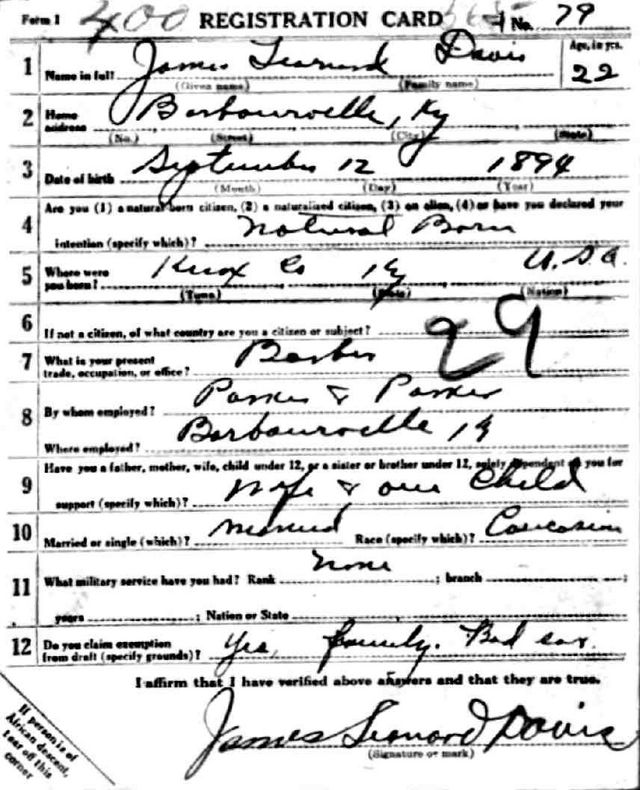 Form 1 400 REGISTRATION CARD No. 79
1 Name in full James Leonard Davis Age, in yrs. 22
(Given name) (Family name)
2 Home address Barbourville, Ky
(No.) (Street) (City) (State)
3 Date of birth September 12 1894
(Month) (Day) (Year)
Are you (1) a natural born citizen, (2) a naturalized citizen, (3) an alien, (4) or have you declared your
4 intention (specify which)? Natural Born
5 Where were you born? Knox Co Ky U.S.A.
(Town) (State) (Nation)
6 If not a citizen, of what country are you a citizen or subject?
29
7 What is your present trade, occupation, or office? Barber
8 By whom employed? Parker & Parker
Where employed? Barbourville Ky
9 Have you a father, mother, wife, child under 12, or a sister or brother under 12, solely dependent on you for
support (specify which)? Wife & one Child
10 Married or single (which)? Married Race (specify which)? Caucasian
11 What military service have you had? Rank None ; branch ;
years ; Nation or State
12 Do you claim exemption from draft (specify grounds)? Yes, family. Bad
I affirm that I have verified above answers and that they are true.
James Leonard Davis
(Signature or mark)
If person is of
African descent,
tear off this
corner